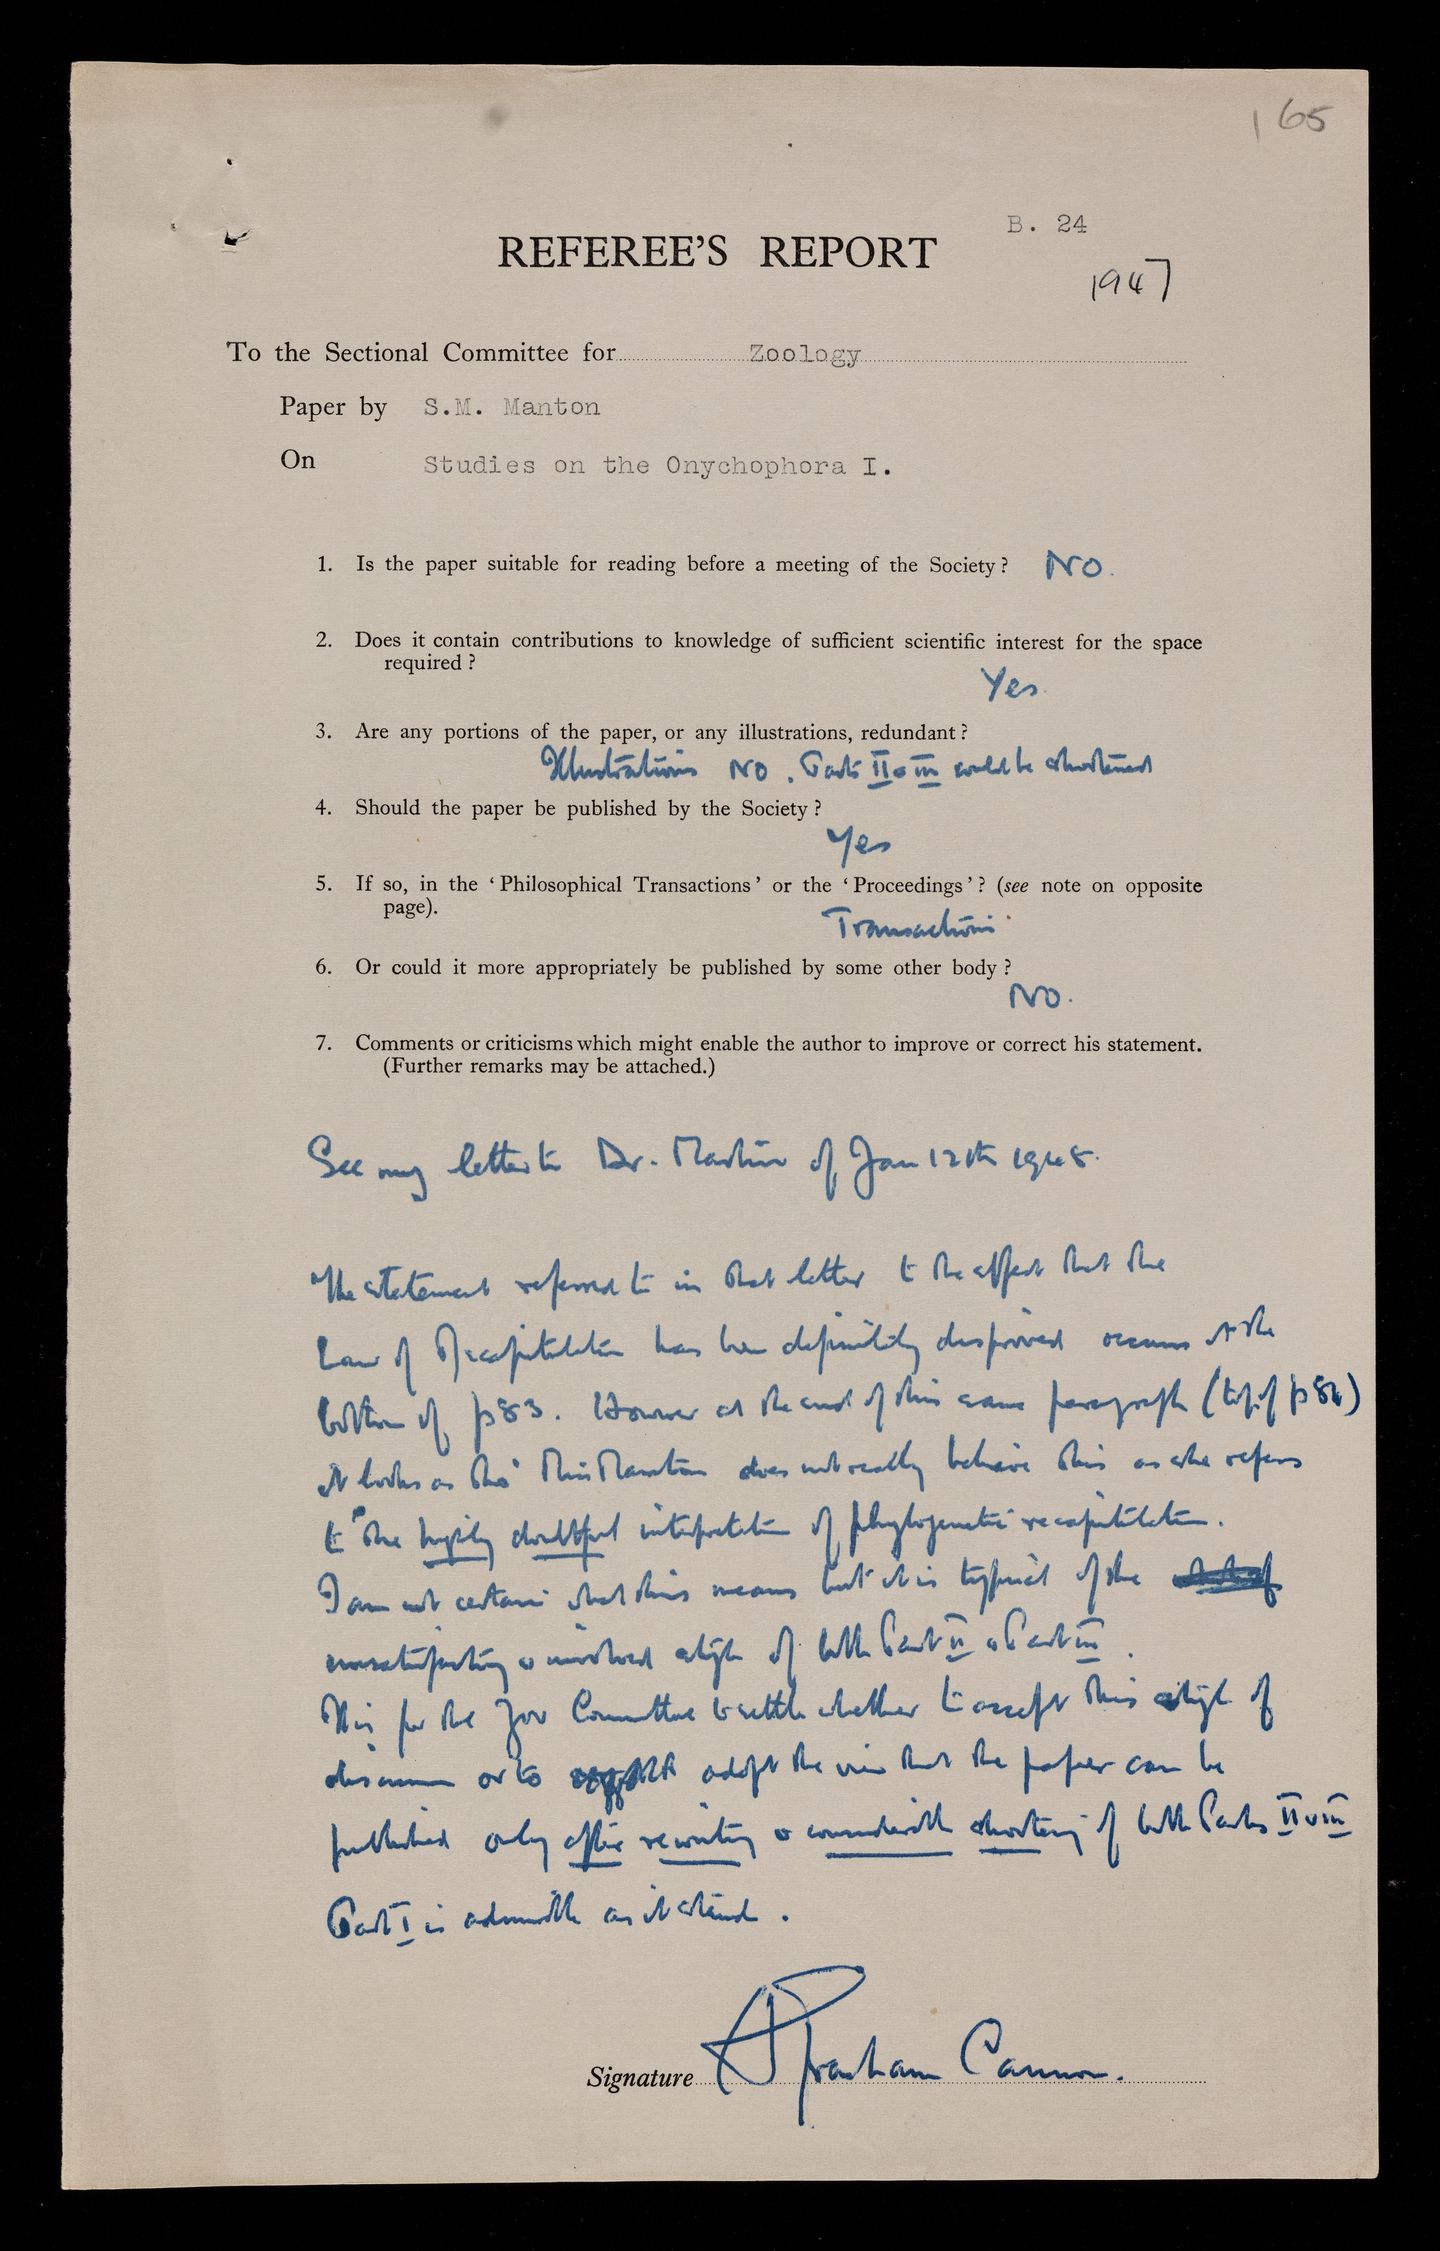 165
B. 24
REFEREE'S REPORT
1947
To the Sectional Committee for Zoology
Paper by S.M. Manton
On Studies on the Onychophora I.
1. Is the paper suitable for reading before a meeting of the Society? NO.
2. Does it contain contributions to knowledge of sufficient scientific interest for the space
required?
Yes.
3. Are any portions of the paper, or any illustrations, redundant?
Illustrations NO. Parts II & III could be shortened
4. Should the paper be published by the Society?
Yes
5. If so, in the 'Philosophical Transactions' or the 'Proceedings'? (see note on opposite
page).
Transactions
6. Or could it more appropriately be published by some other body?
NO.
7. Comments or criticisms which might enable the author to improve or correct his statement.
(Further remarks may be attached.)
See my letter to Dr. Martin of Jan 12th 1948.
The statement referred to in that letter to the effect that the
Law of Recapitulation has been definitely disproved occurs at the
bottom of p 83. However at the end of this same paragraph (top of p 84)
it looks as tho' Miss Manton does not really believe this as she refers
to "the highly doubtful interpretation of phylogenetic recapitulation.
I am not certain what this means but it is typical of the
unsatisfactory & involved style of both Part II & Part III.
It is for the Zoo Committee to settle whether to accept this style of
discussion or to adopt the view that the paper can be
published only after rewriting & considerable shortening of both Parts II & III
Part I is admirable as it stands.
Signature H Graham Cannon.